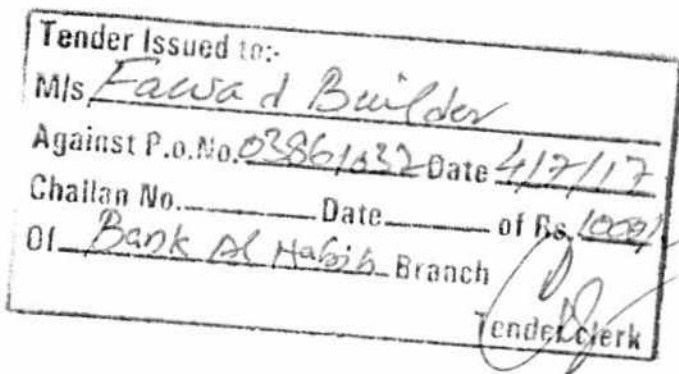 Tender Issued to:-
M/s Fawad Builder
Against P.o.No. 03861032 Date 4/7/17
Challan No. Date of Rs. 1000/-
Of Bank Al Habib Branch
Tender clerk